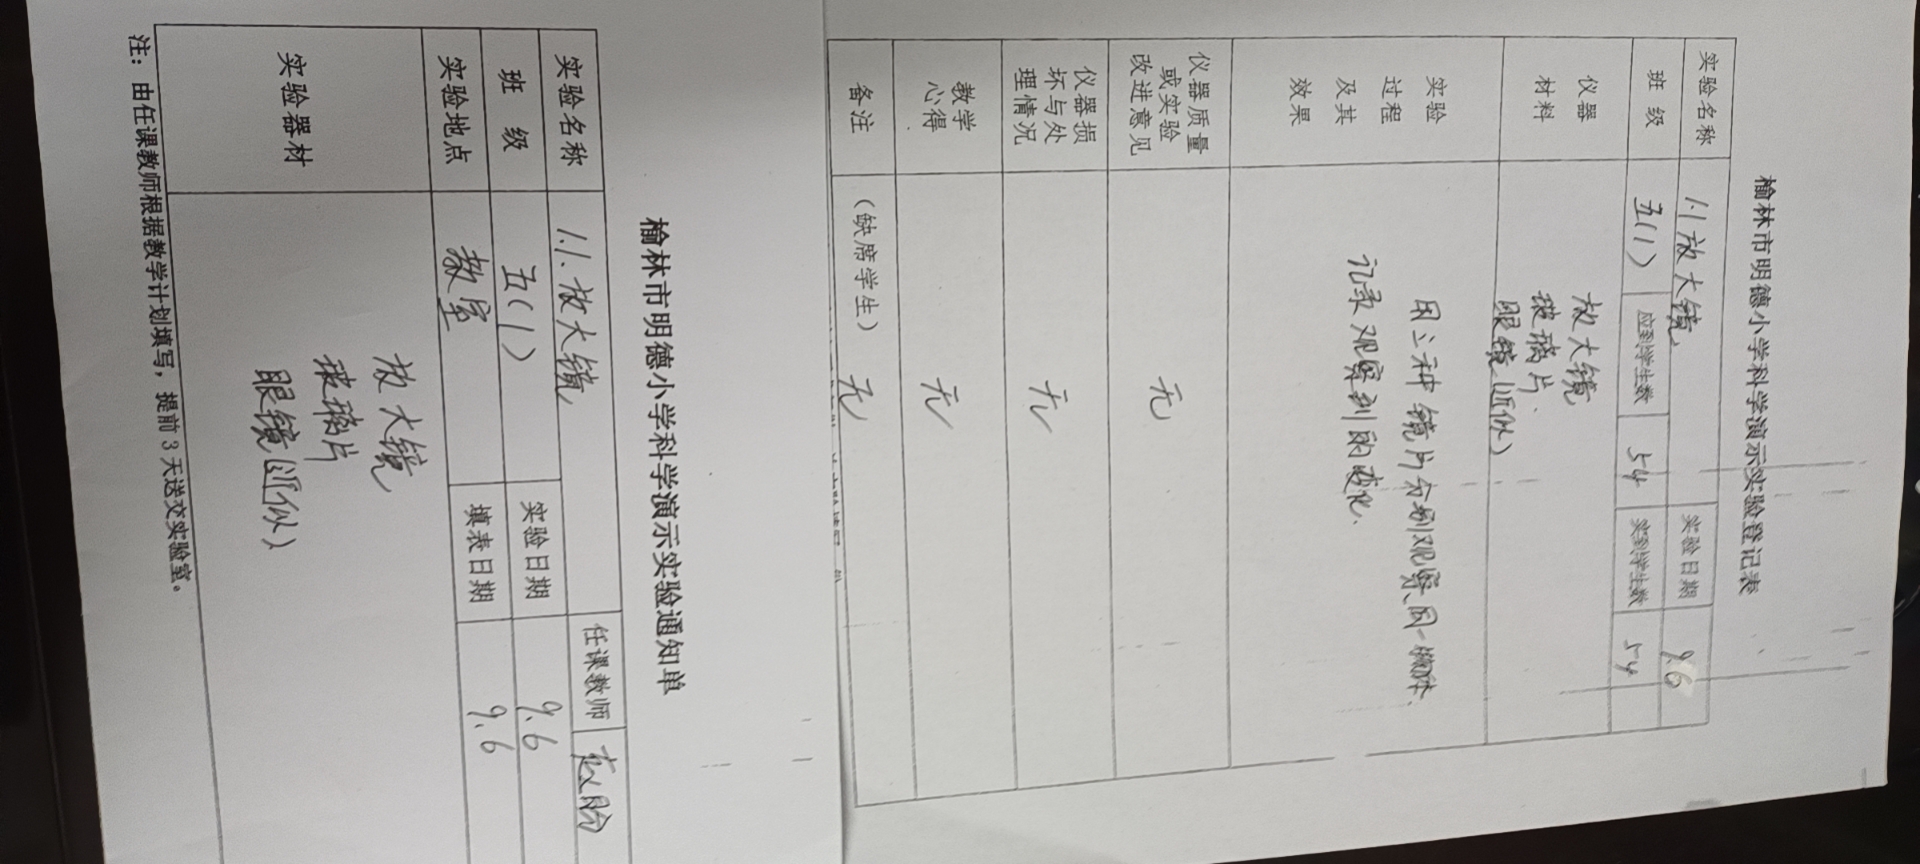 榆林市明德小学科学演示实验登记表
实验名称 1.1放大镜 实验日期 9.6
班 级 五(1) 应到学生数 54 实到学生数 54
仪器 材料 放大镜
玻璃片.
眼镜(近似)
实验 过程 及其 效果 用三种镜片分别观察同一物体.
记录观察到的变化.
仪器质量 或实验 改进意见 无
仪器损 坏与处 理情况 无
教学 心得 无
备注 (缺席学生) 无
榆林市明德小学科学演示实验通知单
实验名称 1.1.放大镜 任课教师
班 级 五(1) 实验日期 9.6
实验地点 教室 填表日期 9.6
实验器材 放大镜
玻璃片
眼镜(近似)
注：由任课教师根据教学计划填写，提前3天送交实验室。